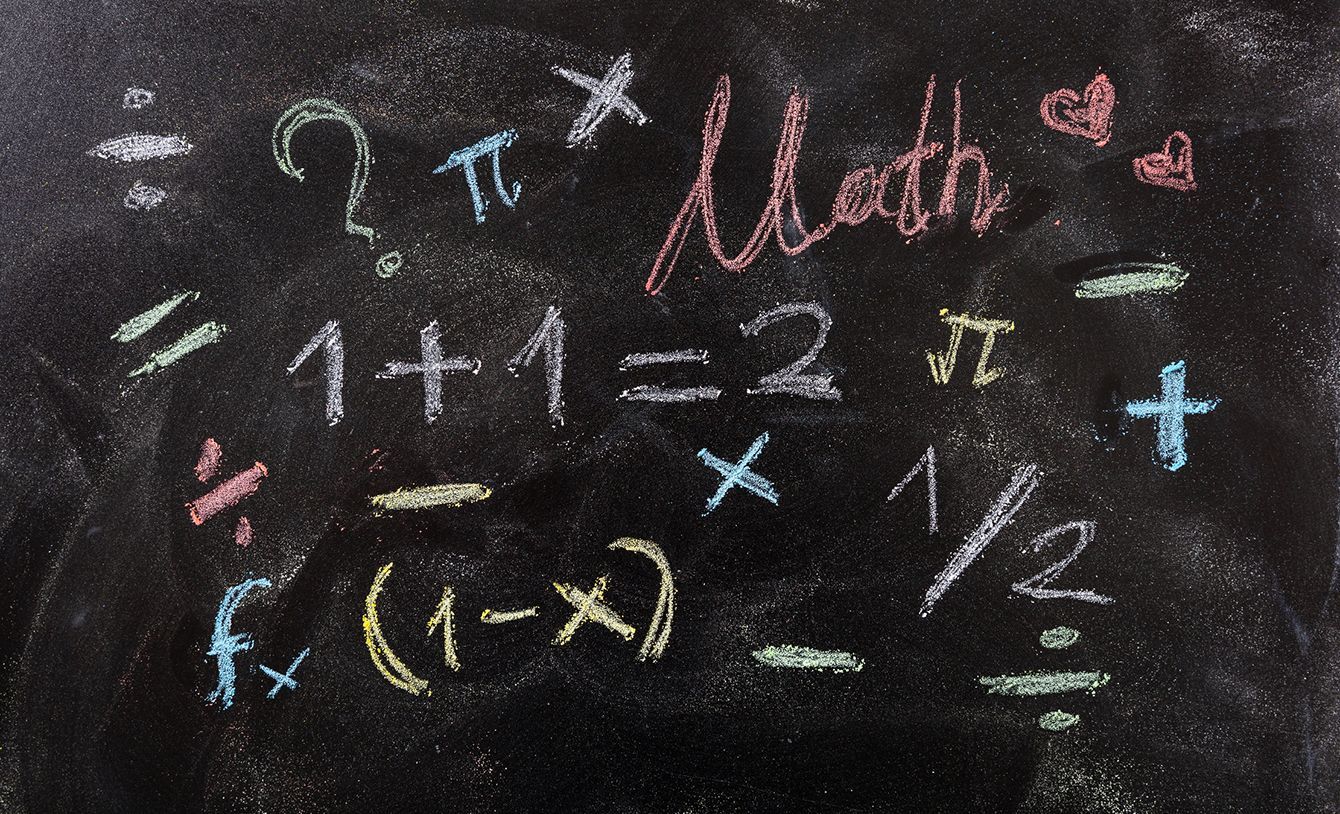 ÷ ? π × Math
= 1+1=2 √π −
÷ − × 1/2 +
fx (1-x) − ÷